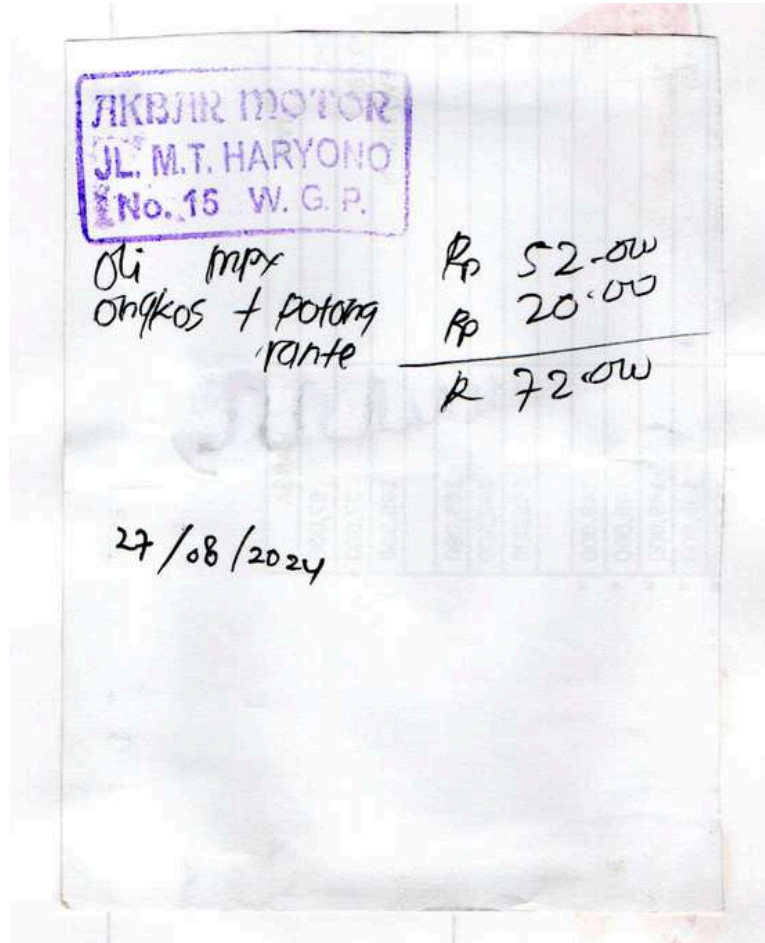 AKBAR MOTOR
JL. M.T. HARYONO
No. 15 W. G. P.
Oli mpx Rp 52.000
ongkos + potong Rp 20.000
rante
R 72.000
27/08/2024